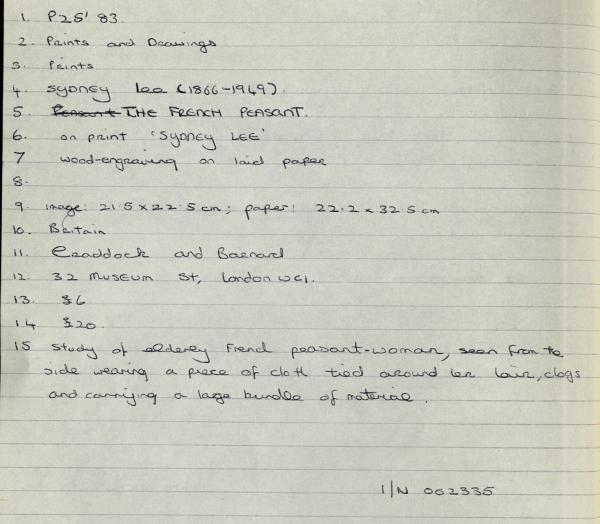 1. P25'83.
2. Prints and Drawings
3. Prints
4. Sydney Lee (1866-1949).
5. Peasant THE FRENCH PEASANT.
6. on print 'SYDNEY LEE'
7 wood-engraving on laid paper
8.
9. image: 21.5 x 22.5 cm; paper: 22.2 x 32.5 cm
10. Britain
11. Craddock and Barnard
12. 32 Museum St, London WC1.
13. £6
14 £20.
15 Study of elderey French peasant-woman, seen from the
side wearing a piece of cloth tied around her hair, clogs
and carrying a large bundle of material.
I/N 002335